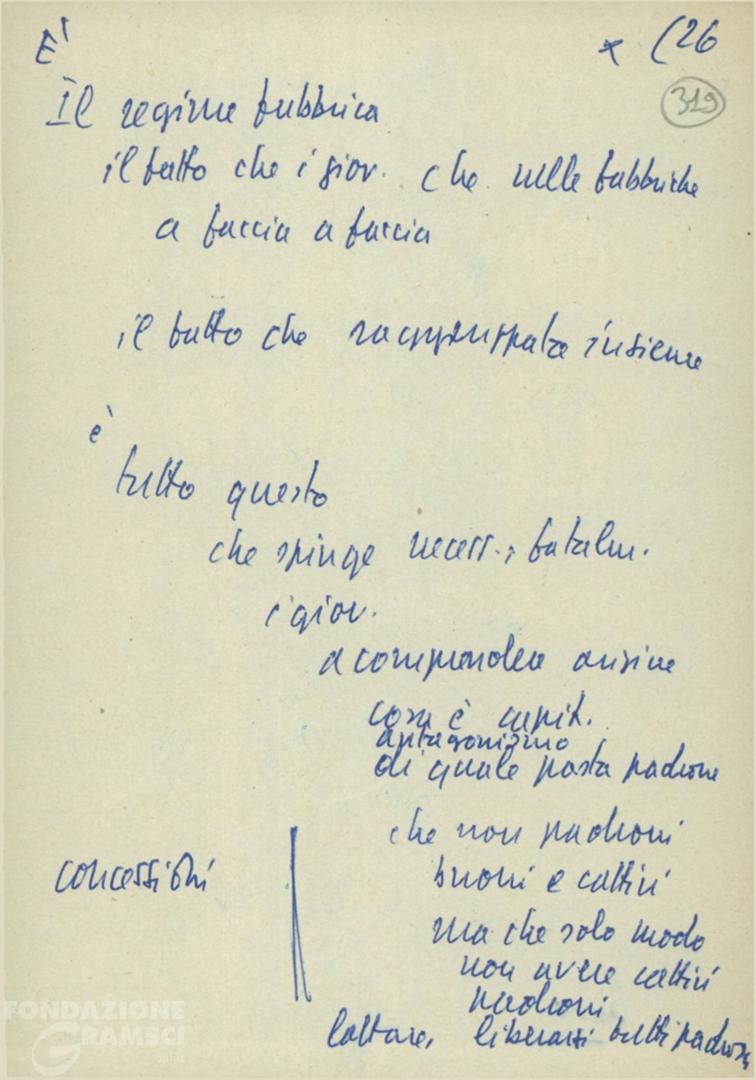 E'
x (26
319
Il regime fabbrica
il fatto che i giov. che nelle fabbriche
a faccia a faccia
il fatto che raggruppata insieme
è
tutto questo
che spinge necess., fatalm.
i giov.
a comprendere
cosa è capit.
antagonismo
di quale pasta padrone
che non padroni
buoni e cattivi
concessioni
ma che solo modo
non avere cattivi
padroni
lottare, liberarsi tutti padroni
FONDAZIONE
GRAMSCI